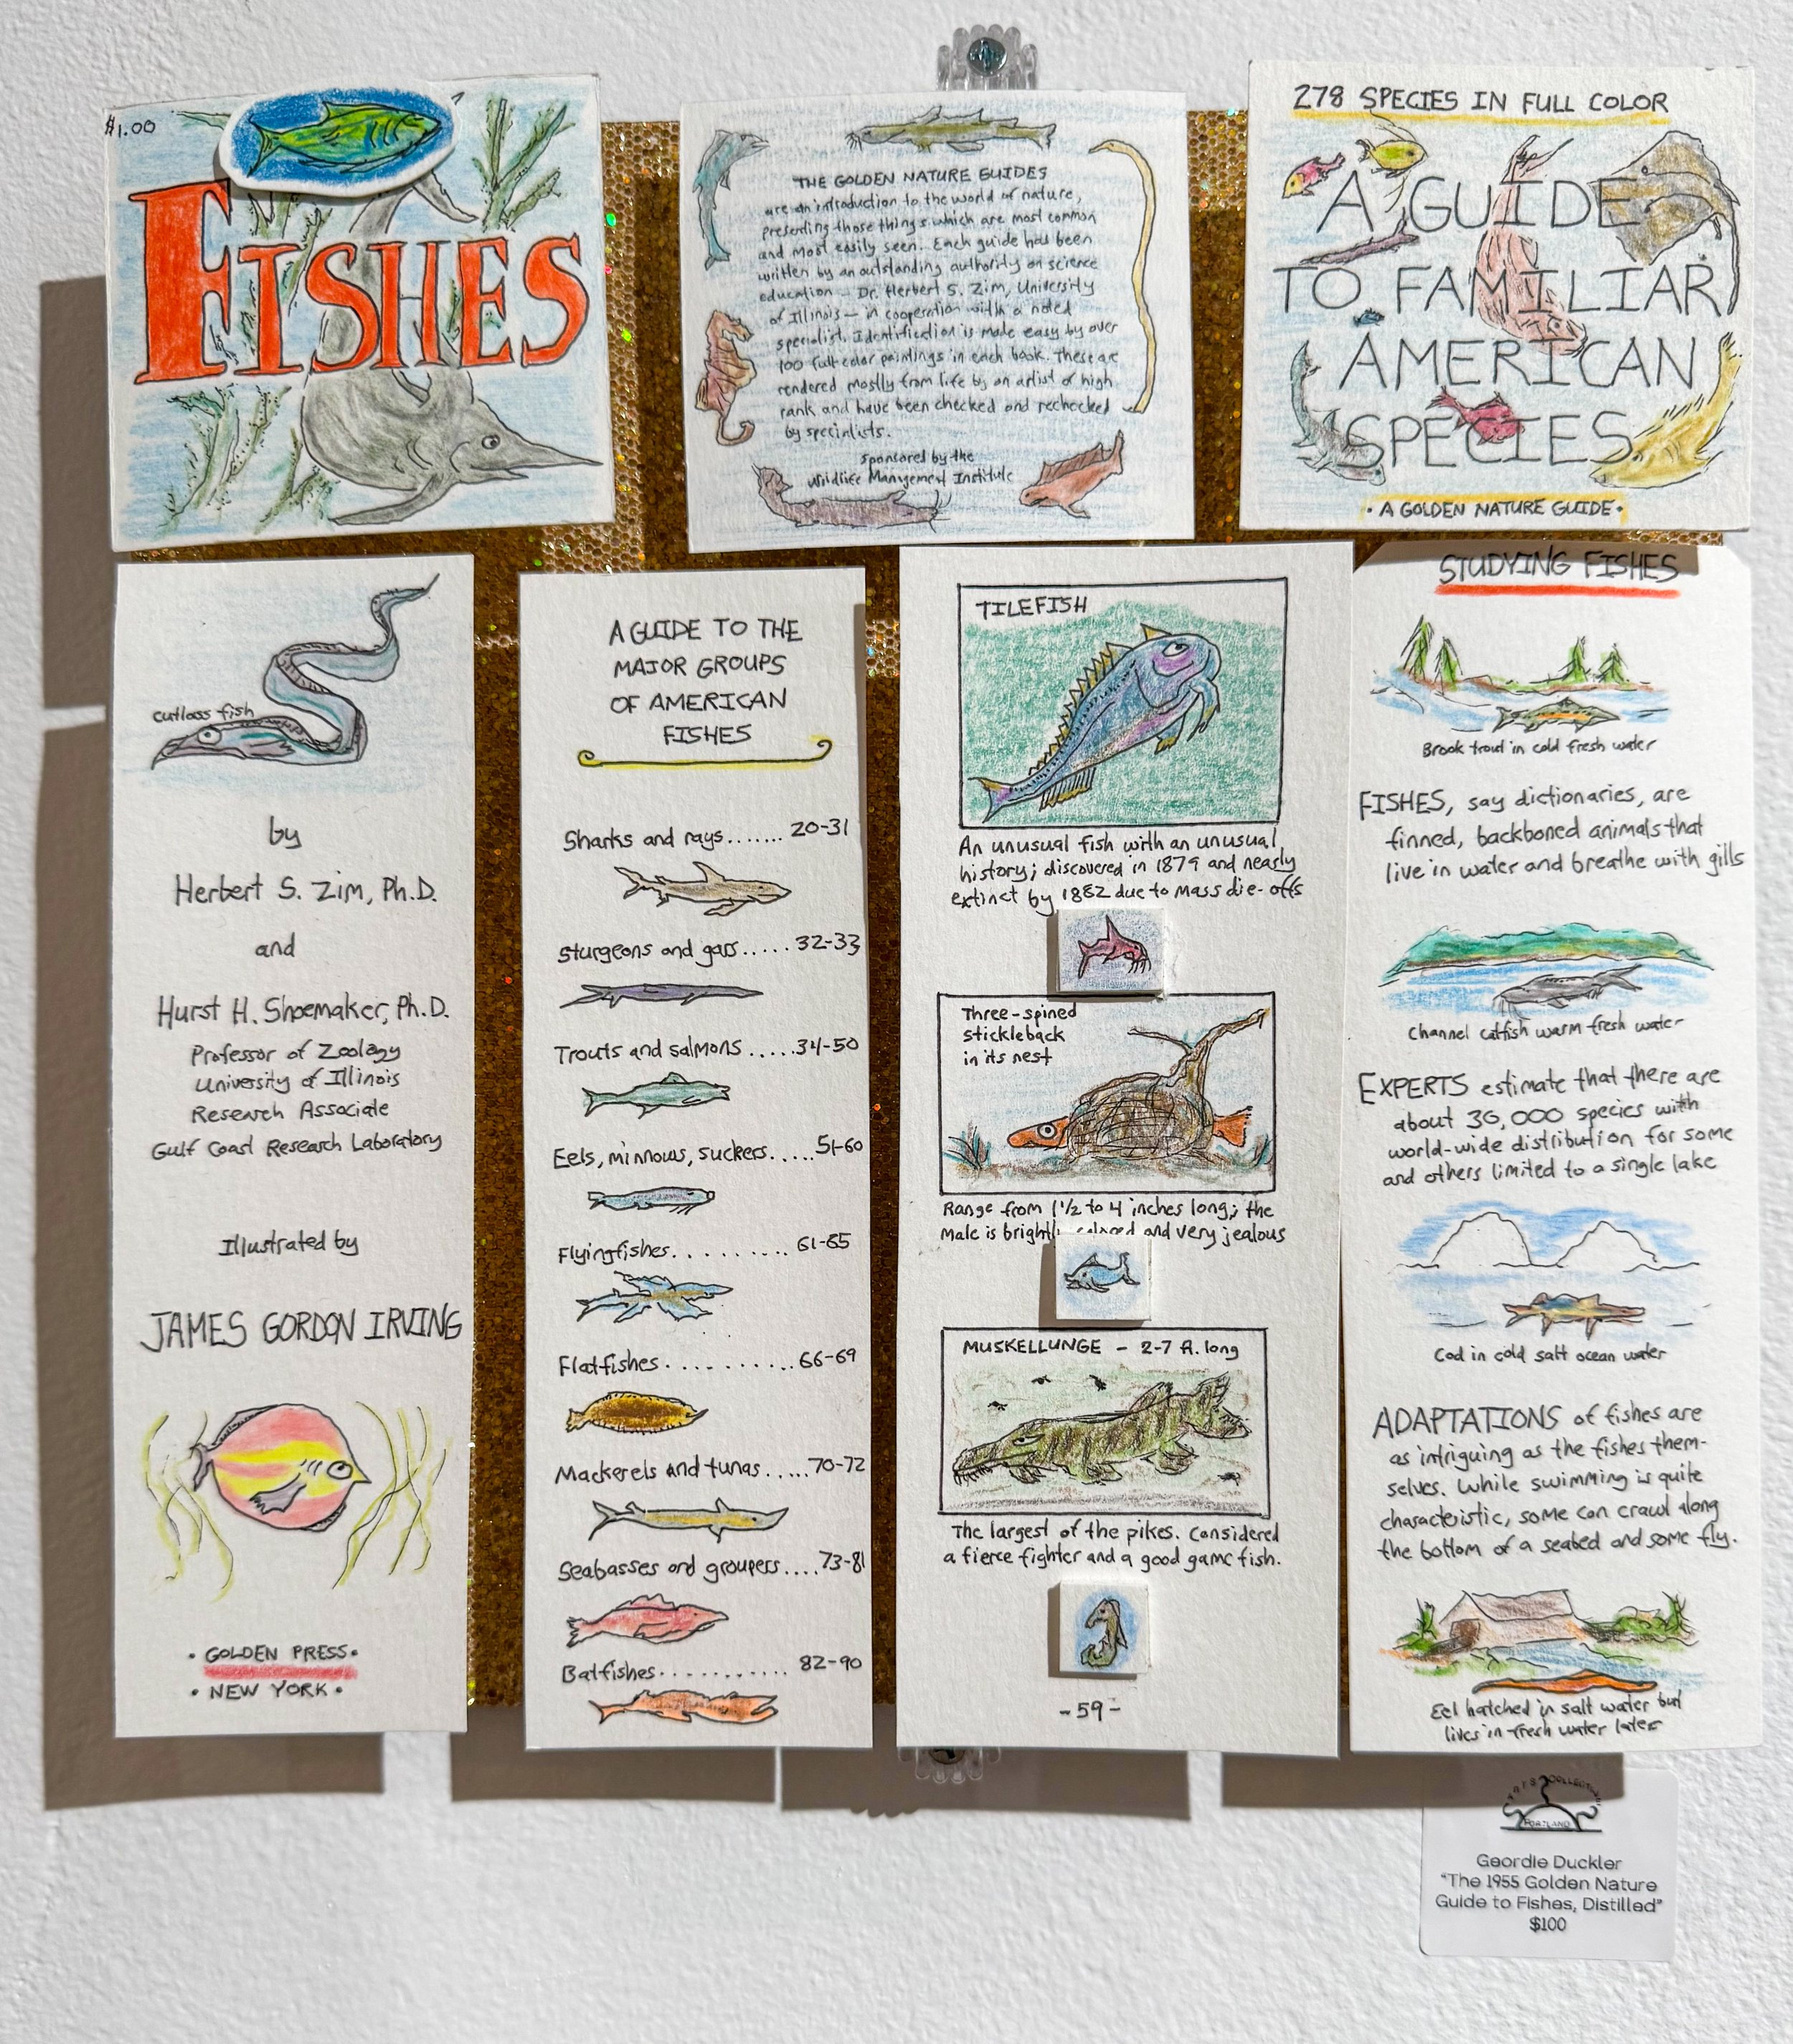 $1.00
FISHES
THE GOLDEN NATURE GUIDES
are an introduction to the world of nature,
presenting those things which are most common
and most easily seen. Each guide has been
written by an outstanding authority on science
education - Dr. Herbert S. Zim, University
of Illinois - in cooperation with a noted
specialist. Identification is made easy by over
100 full color paintings in each book. These are
rendered mostly from life by an artist of high
rank and have been checked and rechecked
by specialists.
sponsored by the
Wildlife Management Institute
278 SPECIES IN FULL COLOR
A GUIDE
TO FAMILIAR
AMERICAN
SPECIES
• A GOLDEN NATURE GUIDE •
cutlass fish
by
Herbert S. Zim, Ph.D.
and
Hurst H. Shoemaker, Ph.D.
Professor of Zoology
University of Illinois
Research Associate
Gulf Coast Research Laboratory
Illustrated by
JAMES GORDON IRVING
• GOLDEN PRESS •
• NEW YORK •
A GUIDE TO THE
MAJOR GROUPS
OF AMERICAN
FISHES
Sharks and rays....... 20-31
Sturgeons and gars..... 32-33
Trouts and salmons.....34-50
Eels, minnows, suckers.....51-60
Flyingfishes.......... 61-65
Flatfishes.......... 66-69
Mackerels and tunas.....70-72
Seabasses and groupers....73-81
Batfishes........... 82-90
TILEFISH
An unusual fish with an unusual
history; discovered in 1879 and nearly
extinct by 1882 due to mass die-offs
Three-spined
stickleback
in its nest
Range from 1 1/2 to 4 inches long; the
male is brightly colored and very jealous
MUSKELLUNGE - 2-7 ft. long
The largest of the pikes. Considered
a fierce fighter and a good game fish.
-59-
STUDYING FISHES
Brook trout in cold fresh water
FISHES, say dictionaries, are
finned, backboned animals that
live in water and breathe with gills
Channel catfish warm fresh water
EXPERTS estimate that there are
about 30,000 species with
world-wide distribution for some
and others limited to a single lake
Cod in cold salt ocean water
ADAPTATIONS of fishes are
as intriguing as the fishes them-
selves. While swimming is quite
characteristic, some can crawl along
the bottom of a seabed and some fly.
Eel hatched in salt water but
lives in fresh water later
COLLECTIVE
PORTLAND
Geordie Duckler
"The 1955 Golden Nature
Guide to Fishes, Distilled"
$100